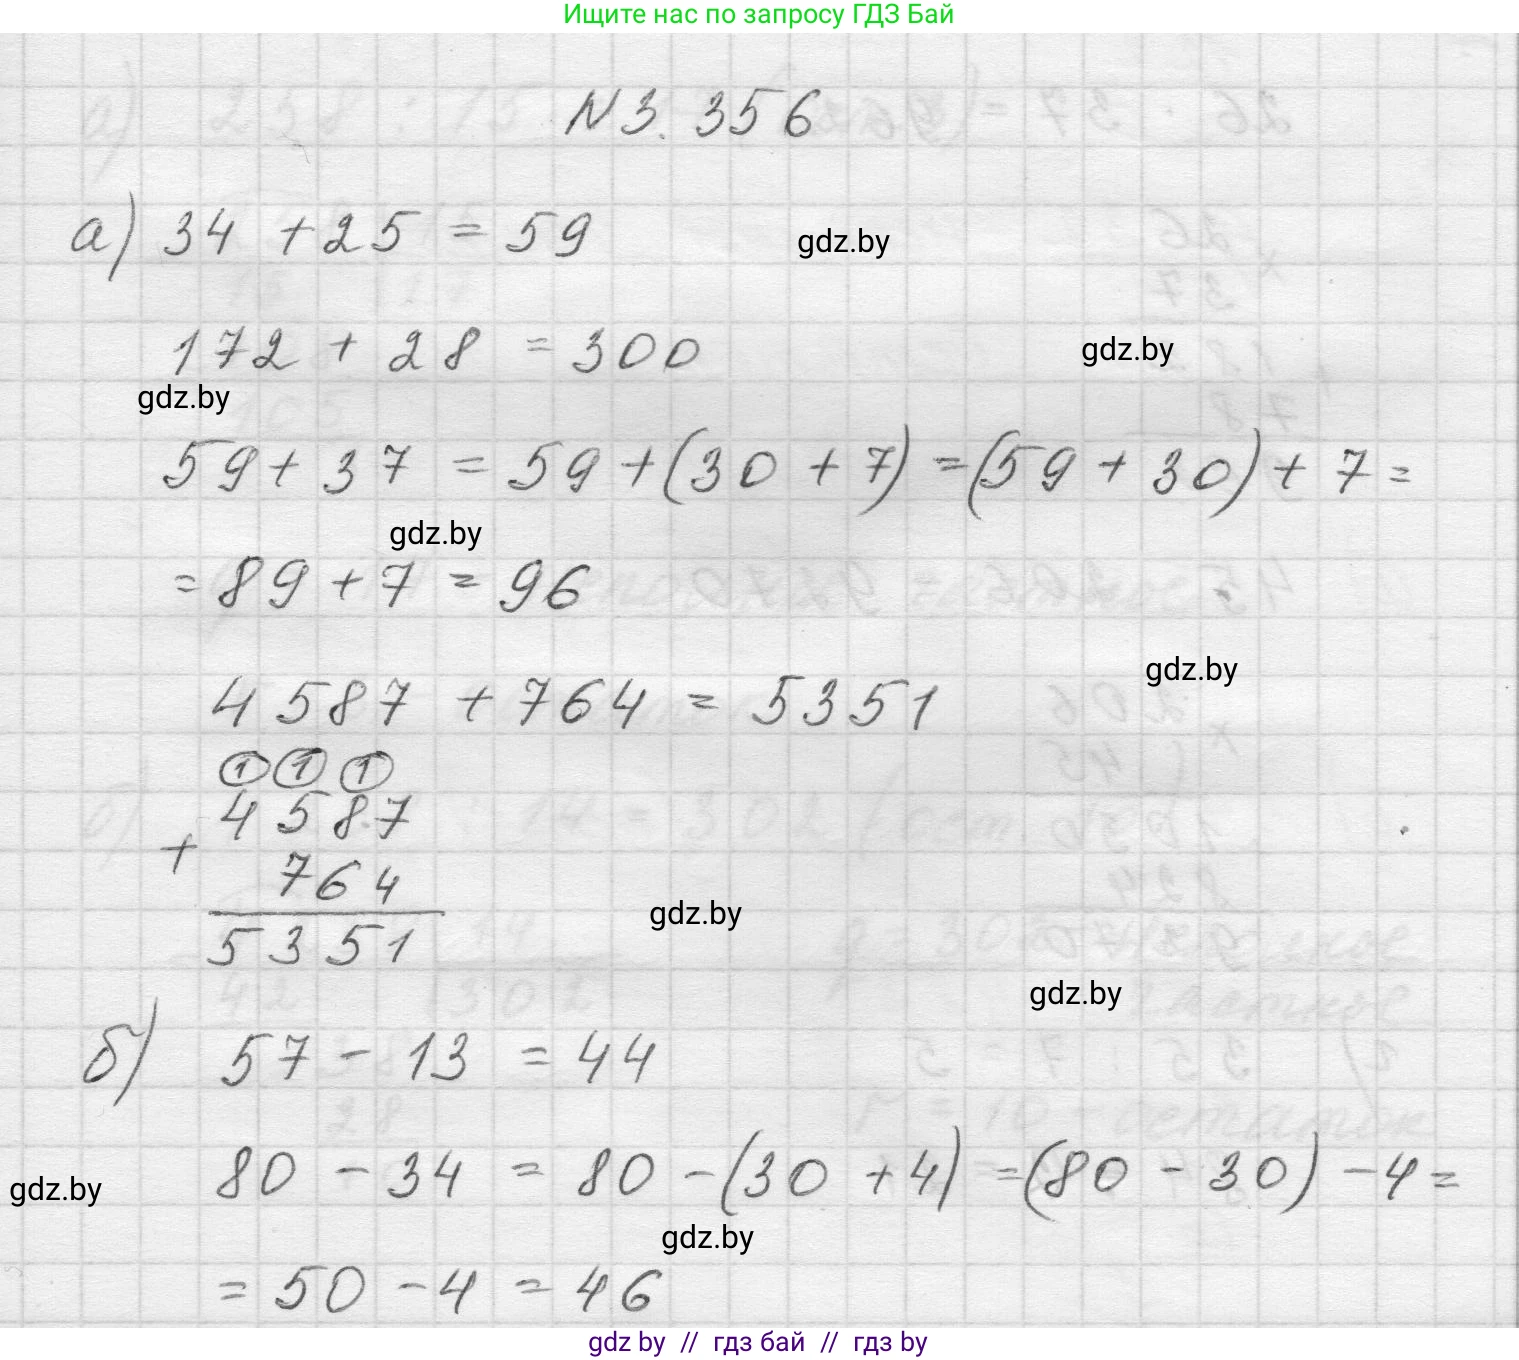 Ищите нас по запросу ГДЗ Бай
N 3. 356
а) 34 + 25 = 59
gdz.by
172 + 28 = 300
gdz.by
gdz.by
59 + 37 = 59 + (30 + 7) = (59 + 30) + 7 =
gdz.by
= 89 + 7 = 96
gdz.by
4587 + 764 = 5351
1 1 1
4587
+
764
gdz.by
5351
gdz.by
б) 57 - 13 = 44
80 - 34 = 80 - (30 + 4) = (80 - 30) - 4 =
gdz.by
gdz.by
= 50 - 4 = 46
gdz by // гдз бай // гдз by